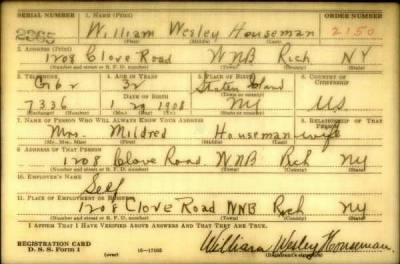 SERIAL NUMBER 1. NAME (Print) ORDER NUMBER
2365 William Wesley Houseman 2150
(First) (Middle) (Last)
2. ADDRESS (Print)
1208 Clove Road WNB Rich NY
(Number and street or R. F. D. number) (Town) (County) (State)
3. TELEPHONE 4. AGE IN YEARS 5. PLACE OF BIRTH 6. COUNTRY OF CITIZENSHIP
32 Staten Island
7336 1 29 1908 NY US
(Exchange) (Number) (Mo.) (Day) (Yr.) (State or country)
7. NAME OF PERSON WHO WILL ALWAYS KNOW YOUR ADDRESS 8. RELATIONSHIP OF THAT PERSON
Mrs. Mildred Houseman wife
(Mr., Mrs., Miss) (First) (Middle) (Last)
9. ADDRESS OF THAT PERSON
1208 Clove Road WNB Rich NY
(Number and street or R. F. D. number) (Town) (County) (State)
10. EMPLOYER'S NAME
Self
11. PLACE OF EMPLOYMENT OR BUSINESS
1208 Clove Road WNB Rich NY
(Number and street or R. F. D. number) (Town) (County) (State)
I AFFIRM THAT I HAVE VERIFIED ABOVE ANSWERS AND THAT THEY ARE TRUE.
REGISTRATION CARD William Wesley Houseman
D. S. S. Form 1 (over) 16—17105 (Registrant's signature)